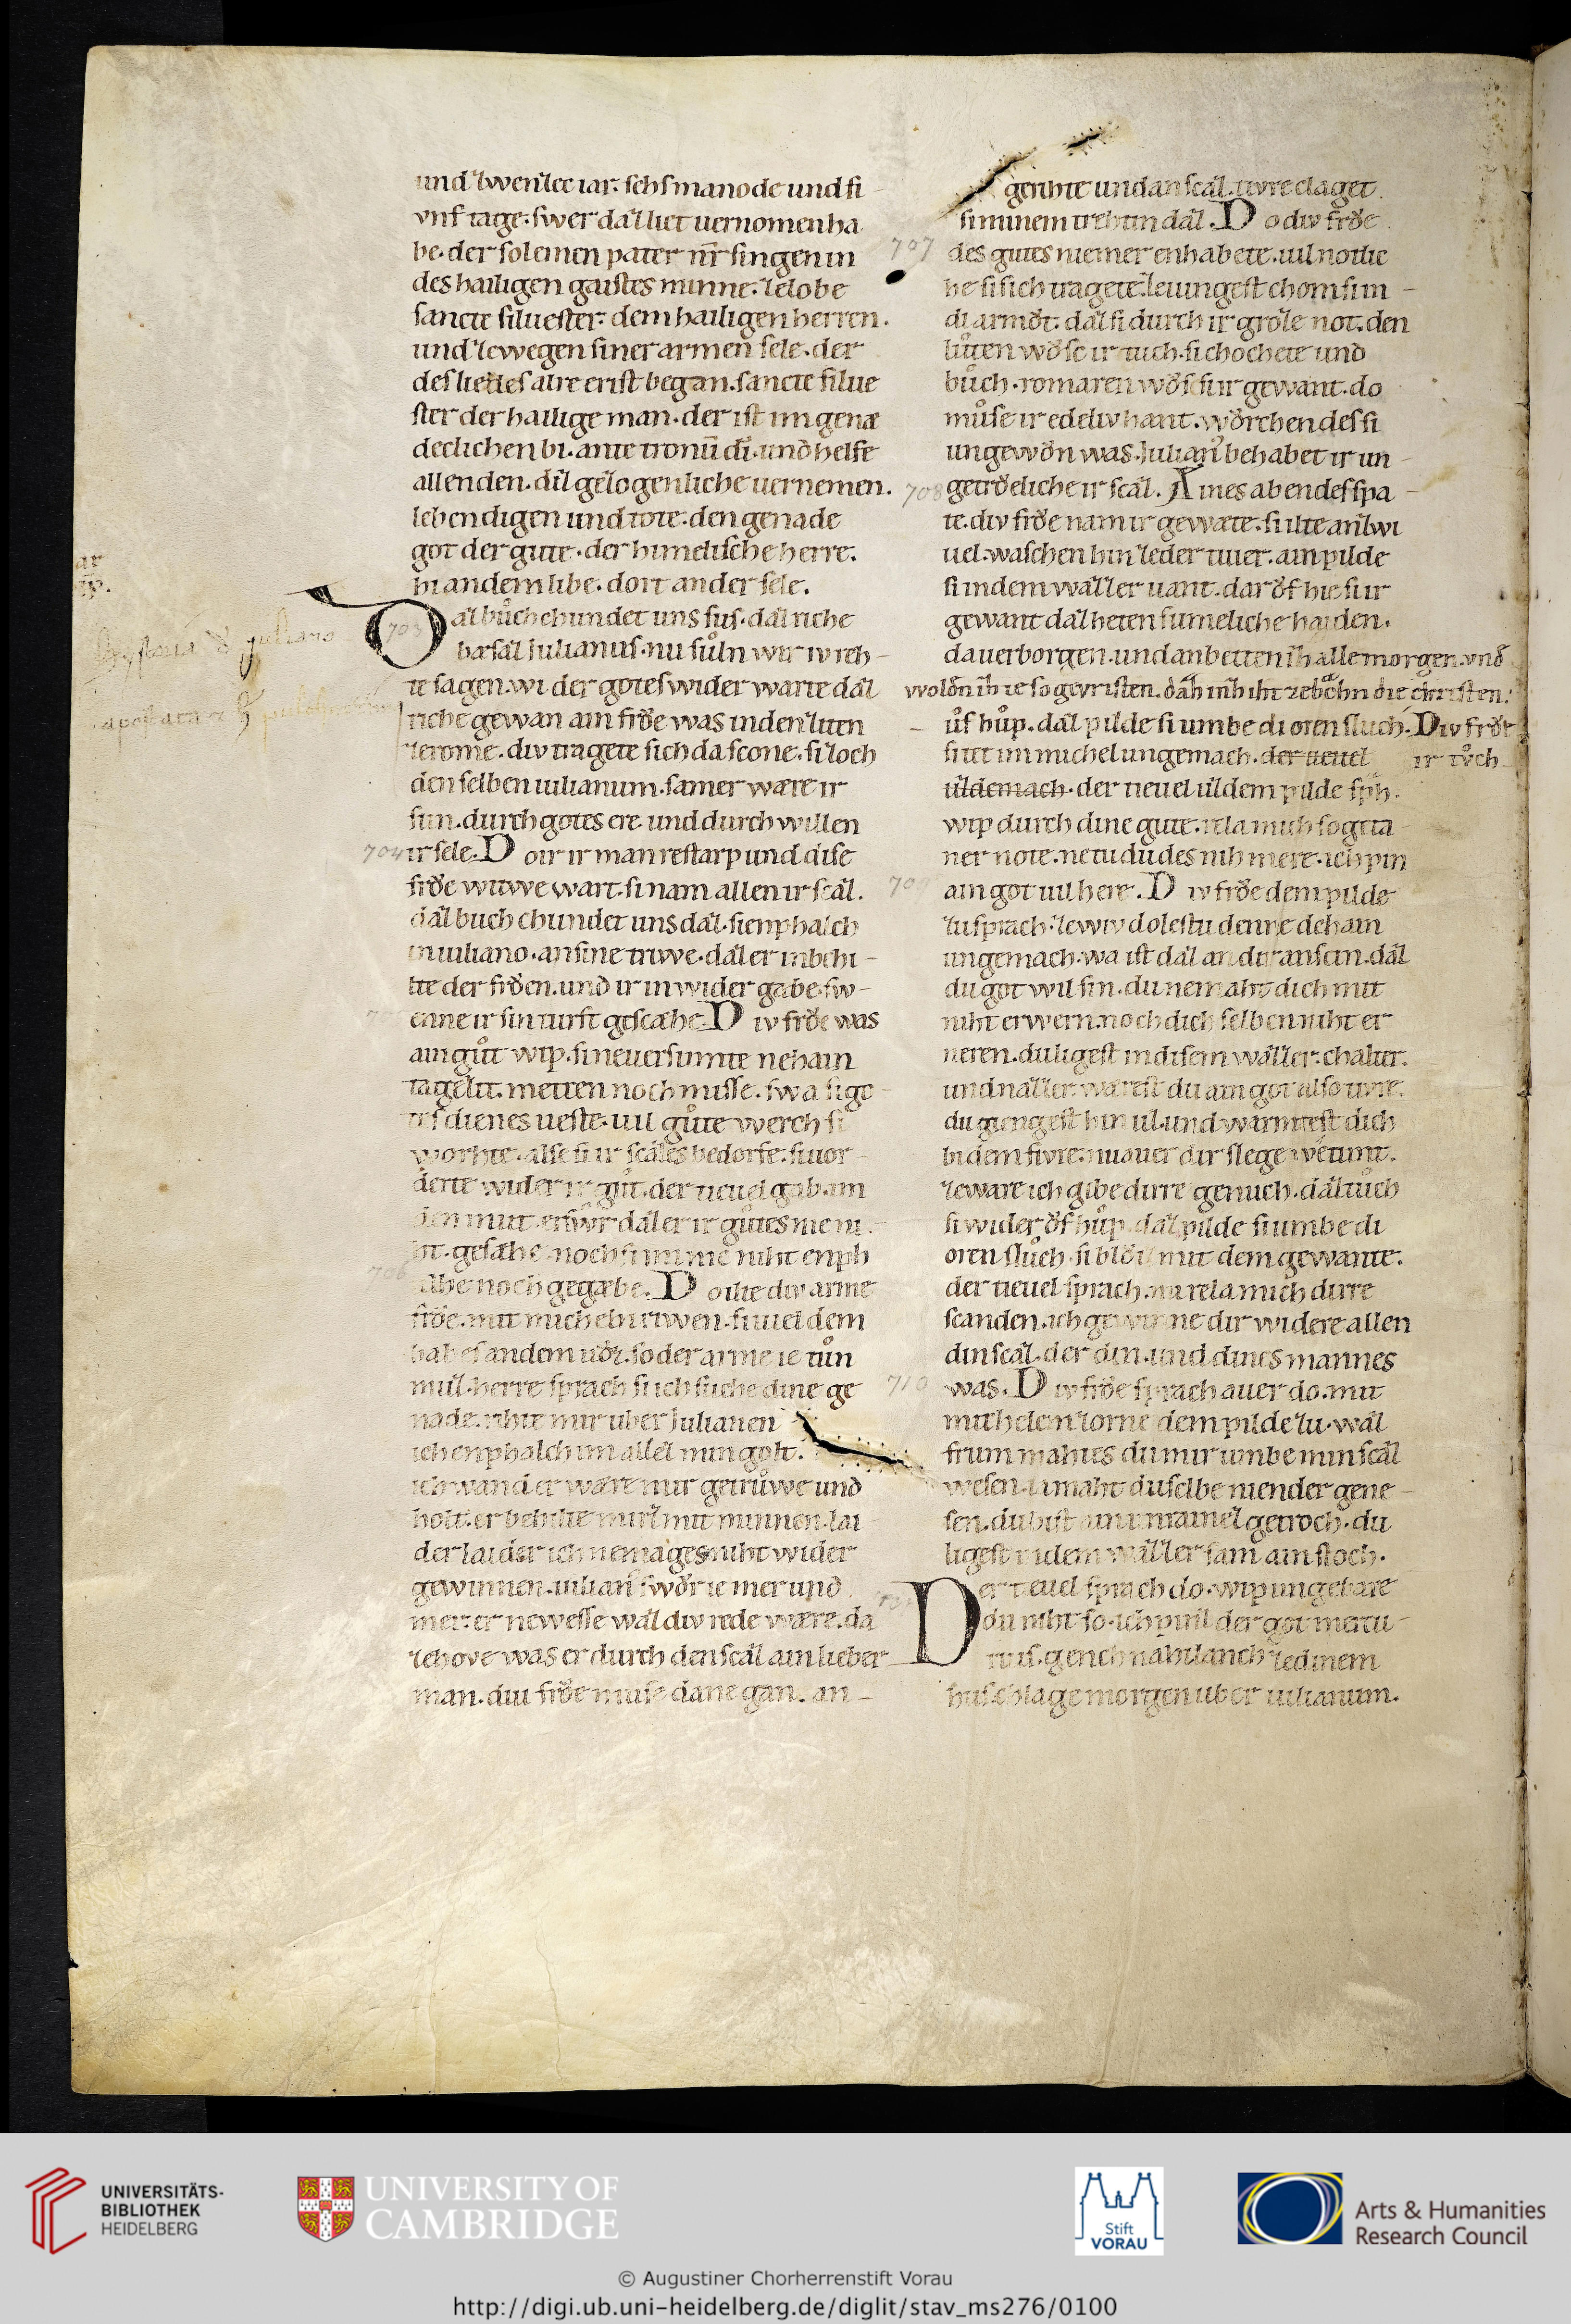 und zwenzec iar. sehs manode und fi-
vnf tage. swer daz liet uernomen ha
be. der sol einen pater nr̄ singen in
des hailigen gaistes minne. ze lobe
sancte siluester. dem hailigen herren.
und ze wegen siner armen sele. der
des liedes alre erist began. sancte silue
ster der hailige man. der ist im genæ
declichen bi. ante tronū dī. und helfe
allen den. diz gezogenliche uernemen.
lebendigen und tote. den genade
got der gute. der himelische herre.
hi an dem libe. dort an der sele.
Daz bůch chundet uns sus. daz riche
besaz Julianus. nu sůln wir iv reh-
te sagen. wi der gotes wider warte daz
riche gewan ain frŏe was in den ziten
ze rome. div tragete sich da scone. si zoch
den selben iulianum. sam er wære ir
sun. durch gotes ere und durch willen
704 ir sele. Do ir ir man restarp und dise
frŏe witwe wart. si nam allen ir scaz.
daz buch chundet uns daz. si enphalch
in iuliano. an sine triwe. daz er in behi-
lte der frŏen. und ir in wider gabe. sw-
enne ir sin turft gescæhe. Div frŏe was
ain gůt wip. sine uersumte nehain
tagezit. metten noch misse. swa si go-
tes dienes ueste. uil gůte werch si
worhte. alse si ir scazes bedorfte. si uor-
derte wider ir gůt. der tieuel gab im
den mut. er swr daz er ir gůtes nie ni-
ht. gesæhe. noch si im nie niht enph
706 ælhe noch gegæbe. Do ilte div arme
frŏe. mit micheln riwen. si uiel dem
babes an dem uŏz. so der arme ie tůn
můz. herre sprach si ich suche dine ge
nade. rihte mir uber Julianen
ich enphalch im allez min golt.
ich wand er wære mir getrůwe und
holt. er behilte mirz mit minnen. lai
der laider ich nemages niht wider
gewinnen. iulian swŏr ie mer und
mer. er newesse waz div rede wære. da
ze hove was er durch den scaz ain lieber
man. diu frŏe muse dane gan. an-
gerihte und an scaz. tivre claget
si minem trehtin daz. Do div frŏe
707 des gutes niemer enhabete. uil notlic
he si sich tragete. ze iungest chom si in-
di armŏt. daz si durch ir groze not. den
lůten wŏsc ir tuch. si chochete und
bůch. romaren wŏsc si ir gewant. do
můse ir edeliv hant. wŏrchen des si
ungewŏn was. Julian behabet ir un-
708 getrŏeliche ir scaz. Aines abendes spa-
te. div frŏe nam ir gewæte. si ilte anzwi
uel. waschen hin ze der tiuer. ain pilde
si in dem wazzer uant. dar ŏf hie si ir
gewant daz heten sumeliche haiden.
da uerborgen. und anbetten ih alle morgen. vnd
woldn ih ie so gevristen. dah inh iht zebrchn die christen.
ůf hůp. daz pilde si umbe di oren sluch. Div frŏt
si tet im michel ungemach. der tieuel ir tůch
uz dem ach. der tieuel uz dem pilde sph.
wip durch dine gute. rela mich so geta-
ner note. ne tu du des nih mere. ich pin
709 ain got uil here. Div frŏe dem pilde
zu sprach. ze wiv dolestu denne dehain
ungemach. wa ist daz an dir anscin. daz
du got wil sin. du nemaht dich mit
niht erwern. noch dich selben niht er
neren. du ligest in disem wazzer. chalter.
und nazzer. wærest du ain got also tivre.
du giengest hin uz. und warmtest dich
bi dem fivre. nu auer dir slege
ze ware ich gibe dirre genuch. daz tůch
si wider ŏf hůp. daz pilde si umbe di
oren slůch. si blŏz mit dem gewante.
der tieuel sprach. nu rela mich dirre
scanden. ich gewinne dir widere allen
din scaz. der din. und dines mannes
710 was. Div frŏe sprach auer do. mit
michelem zorne dem pilde zu. waz
frum mahtes du mir umbe min scaz
wesen. ia maht du selbe niender gene-
sen. du bist getroch. du
ligest in dem wazzer sam ain stoch.
Der tieuel sprach do. wip ungebare
du niht so. ich pinz der got mercu-
rius. gench nahtlanch ze dinem
hus. chlage morgen uber iulianum.
703
UNIVERSITÄTS-
BIBLIOTHEK
HEIDELBERG
UNIVERSITY OF
CAMBRIDGE
Stift
VORAU
Arts & Humanities
Research Council
© Augustiner Chorherrenstift Vorau
http://digi.ub.uni-heidelberg.de/diglit/stav_ms276/0100